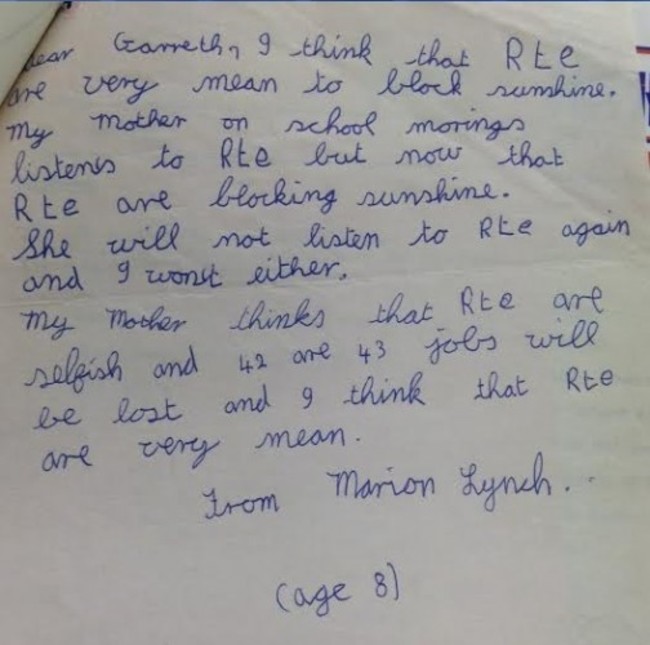 Dear Garreth, I think that RtE
are very mean to block sunshine.
My Mother on school morings
listens to RtE but now that
RtE are blocking sunshine.
She will not listen to RtE again
and I wont either.
My Mother thinks that RtE are
selfish and 42 are 43 jobs will
be lost and I think that RtE
are very mean.
From Marion Lynch.
(age 8)